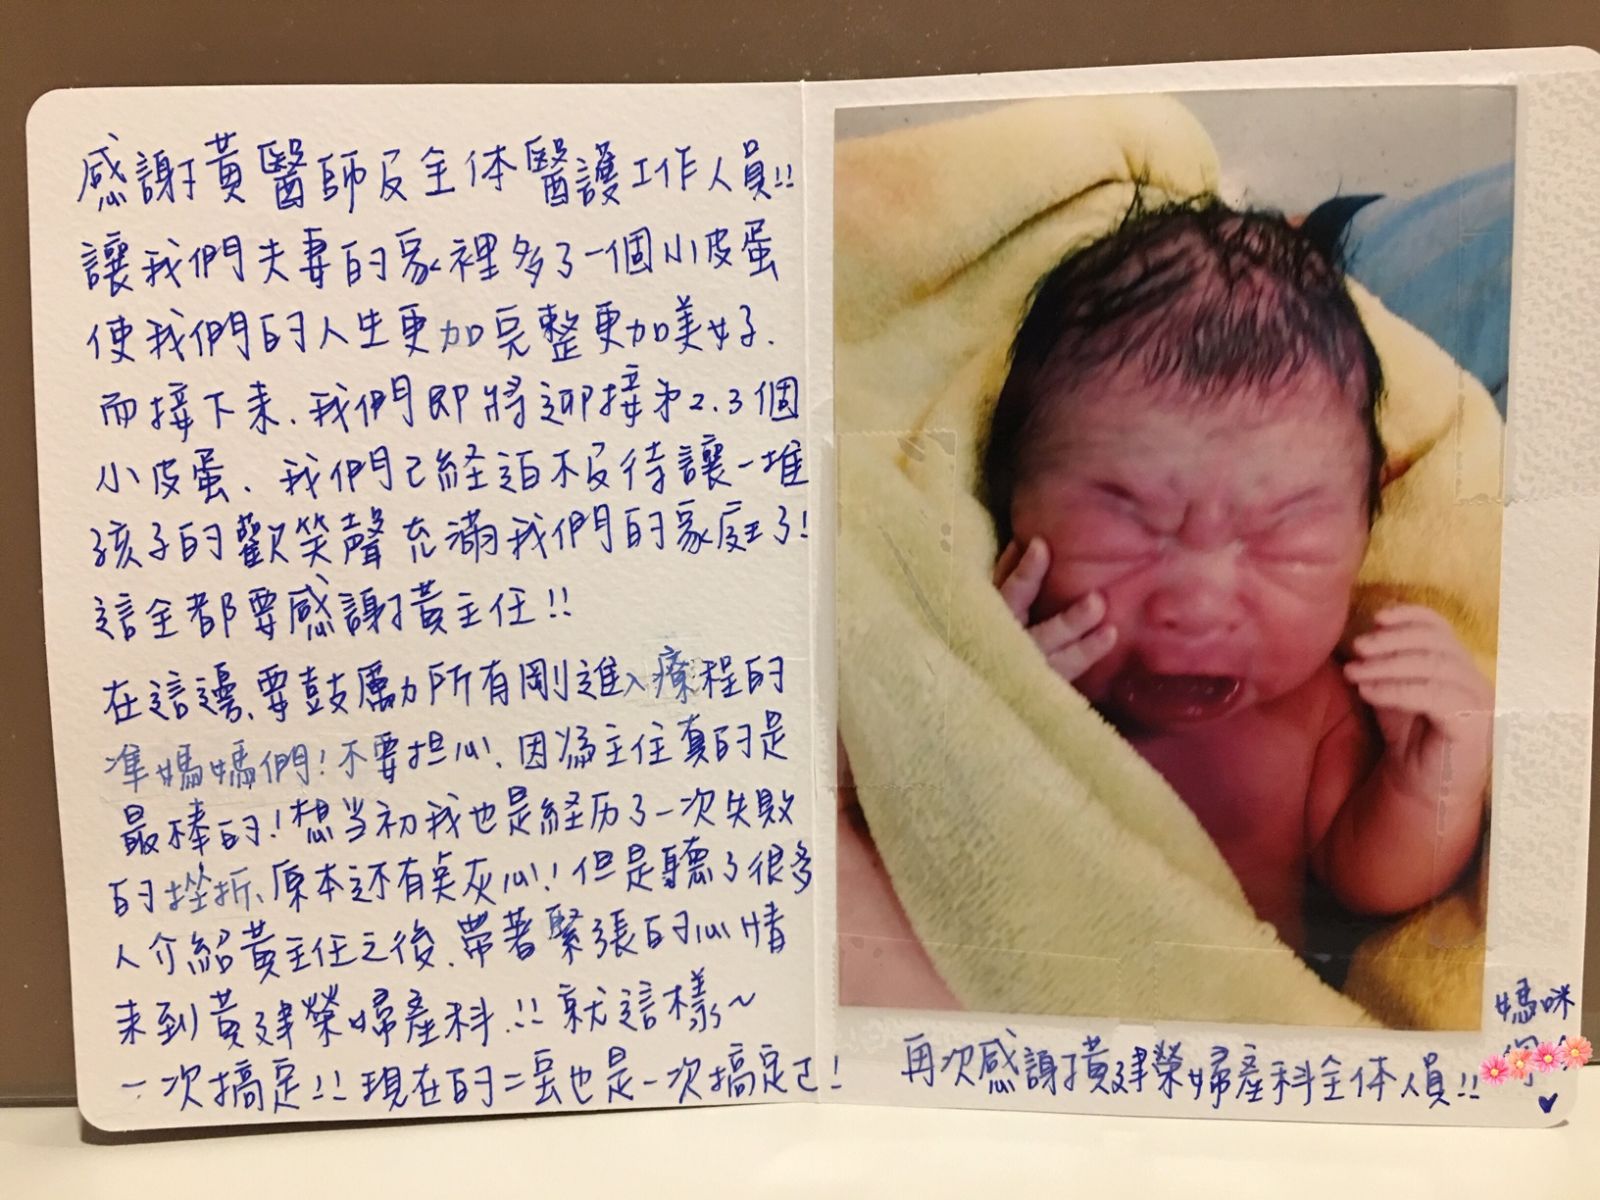 感謝黃醫師及全体醫護工作人員!!
讓我們夫妻的家裡多了一個小皮蛋
使我們的人生更加完整更加美好.
而接下來、我們即將迎接第2.3個
小皮蛋、我們已経迫不及待讓一堆
孩子的歡笑聲充滿我們的家庭了!
這全都要感謝黃主任!!
在這邊、要鼓勵所有剛進入療程的
準媽媽們!不要担心!因為主任真的是
最棒的!想當初我也是経历了一次失敗
的挫折、原本还有奌灰心!但是聽了很多
人介紹黃主任之後、帶著緊張的心情
來到黃建榮婦產科!!就這樣~
一次搞定!!現在的二宝也是一次搞定!
再次感謝黃建榮婦產科全体人員!!
媽咪